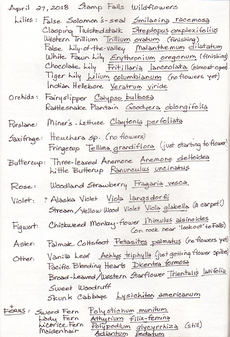 April 27, 2018 Stamp Falls Wildflowers
Lilies: False Solomon's-seal Smilacina racemosa
Clasping Twistedstalk Streptopus amplexifolius
Western Trillium Trillium ovatum (finishing)
False Lily-of-the-valley Maianthemum dilatatum
White Fawn Lily Erythronium oregonum (finishing)
Chocolate Lily Fritillaria lanceolata (almost open)
Tiger Lily Lilium columbianum (no flowers yet)
Indian Hellebore Veratrum viride
Orchids: Fairyslipper Calypso bulbosa
Rattlesnake Plantain Goodyera oblongifolia
Purslane: Miner's Lettuce Claytonia perfoliata
Saxifrage: Heuchera sp. (no flowers)
Fringecup Tellima grandiflora (just starting to flower)
Buttercup: Three-leaved Anemone Anemone deltoidea
Little Buttercup Ranunculus uncinatus
Rose: Woodland Strawberry Fragaria vesca
Violet: ? Alaska Violet Viola langsdorfii
Stream/Yellow Wood Violet Viola glabella (a carpet!)
Figwort: Chickweed Monkey-flower Mimulus alsinoides
(on rock near "lookout" to Falls)
Aster: Palmate Coltsfoot Petasites palmatus (no flowers yet)
Other: Vanilla Leaf Achlys triphylla (just getting flower spike)
Pacific Bleeding Hearts Dicentra formosa
Broad-Leaved/Western Starflower Trientalis latifolia
Sweet Woodruff
Skunk Cabbage Lysichiton americanum
Ferns: Sword Fern Polystichum munitum
Lady Fern Athyrium filix-femina
Licorice Fern Polypodium glycyrrhiza (still)
Maidenhair Adiantum pedatum